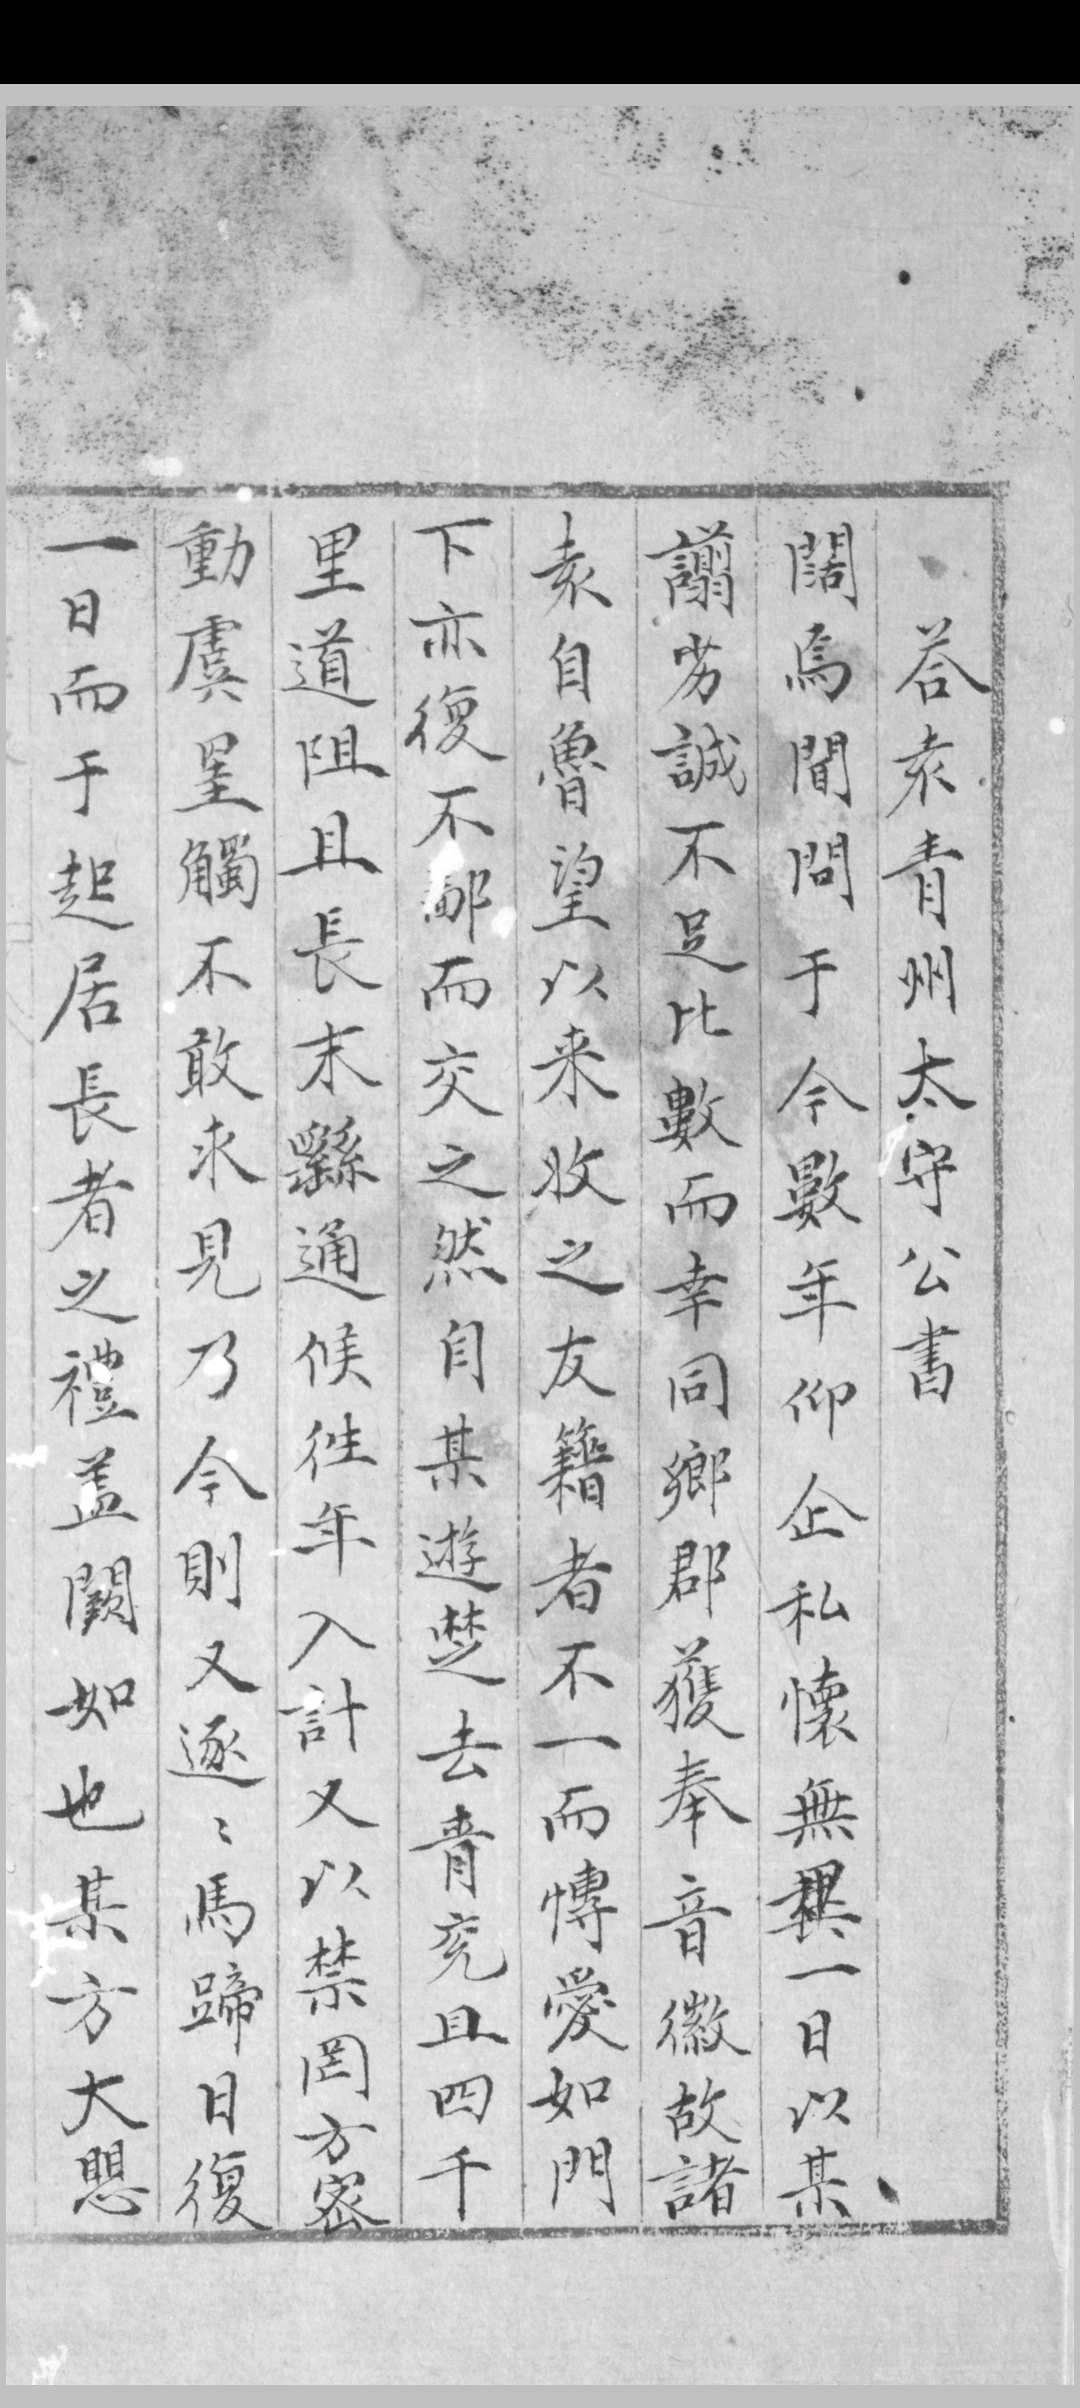 荅袁青州太守公書
闊焉閒問于今數年仰企私懷無異一日以某
譾劣誠不足比數而幸同鄉郡獲奉音徽故諸
袁自魯望以来收之友籍者不一而慱愛如門
下亦復不鄙而交之然自某遊楚去青兗且四千
里道阻且長末繇通候徃年入計又以禁罔方密
動虞罣觸不敢求見乃今則又逐〻馬蹄日復
一日而于起居長者之禮盖闕如也某方大思